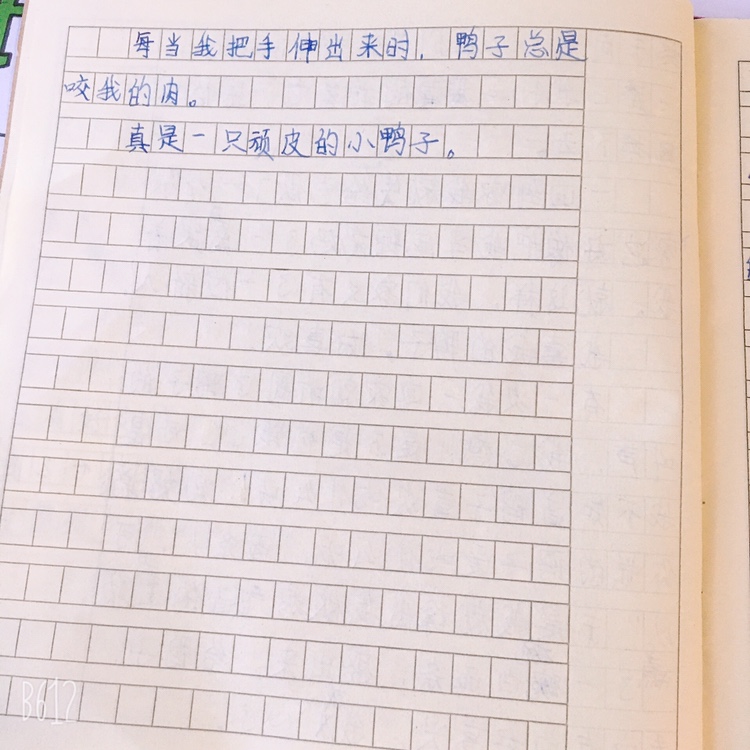 每当我把手伸出来时，鸭子总是
咬我的肉。
真是一只顽皮的小鸭子。
B612